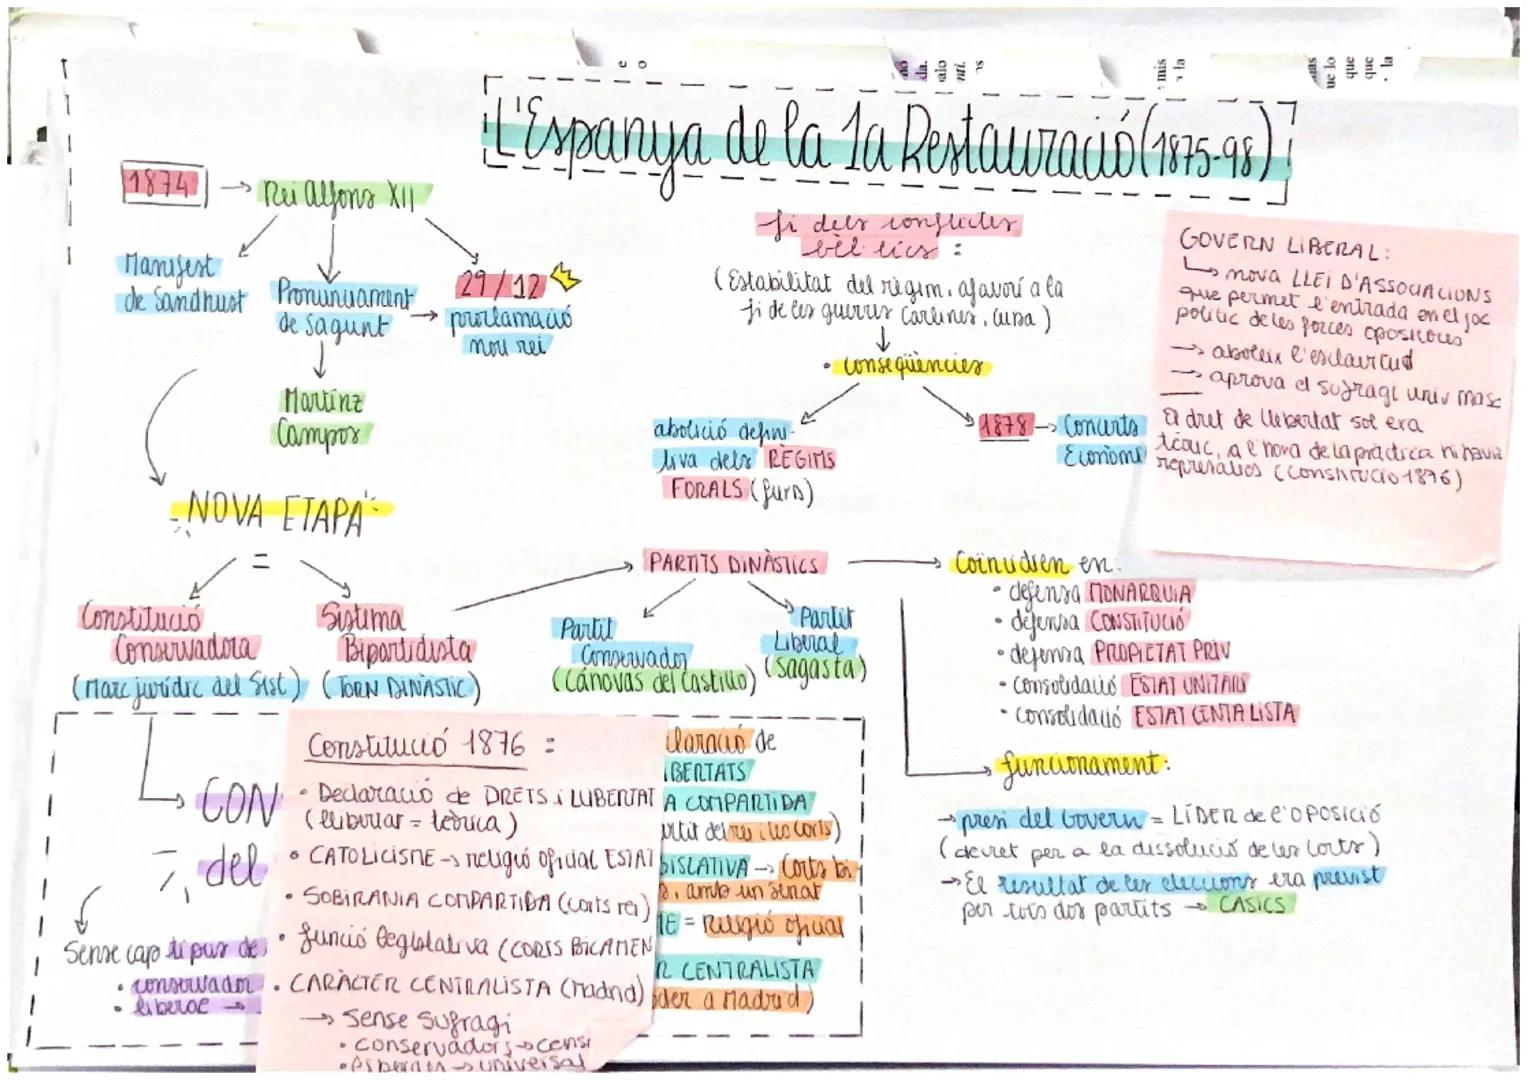 L'Espanya de la 1a Restauració (1875-98)
1874 → Rei Alfons XII
Manifest
de Sandhust
Pronunciament
de Sagunt
→
29/12
proclamació
nou rei
Martínz
Campos
NOVA ETAPA
=
Constitució
Conservadora
(Marc jurídic del Sist)
Sistema
Bipartidista
(TORN DINÀSTIC)
fi dels conflictes
bèl·lics :
(Estabilitat del règim, afavorí a la
fi de les guerres carlines, Cuba)
• conseqüències
abolició defini-
tiva dels RÈGIMS
FORALS (furs)
1878 → Concerts
Econòmi
GOVERN LIBERAL:
↳ nova LLEI D'ASSOCIACIONS
que permet l'entrada en el joc
polític de les forces opositores
→ aboleix l'esclavitud
→ aprova el sufragi univ masc
El dret de llibertat sol era
teòric, a l'hora de la pràctica hi havia
represalies (Constitució 1876)
PARTITS DINÀSTICS
Partit
Conservador
(Cánovas del Castillo)
Partit
Liberal
(Sagasta)
Coincidien en:
• defensa MONARQUIA
• defensa CONSTITUCIÓ
• defensa PROPIETAT PRIV
• consolidació ESTAT UNITARI
• consolidació ESTAT CENTALISTA
funcionament:
→ presi del Govern = LÍDER de l'OPOSICIÓ
(decret per a la dissolució de les Corts)
→ El resultat de les eleccions era previst
per tots dos partits → CASICS
CON
del
Sense cap tipus de
• conservador
• liberal →
Constitució 1876 :
• Declaració de DRETS i LLIBERTAT
(llibertat = teòrica)
• CATOLICISME → religió oficial ESTAT
• SOBIRANIA COMPARTIDA (Corts rei)
• funció legislativa (CORTS BICAMEN
• CARÀCTER CENTRALISTA (Madrid)
→ Sense Sufragi
• conservadors → censi
→ universal
claració de
IBERTATS
A COMPARTIDA
partit del rei i les Corts)
GISLATIVA → Corts bi
, amb un senat
ME = Religió oficial
R CENTRALISTA
oder a Madrid)